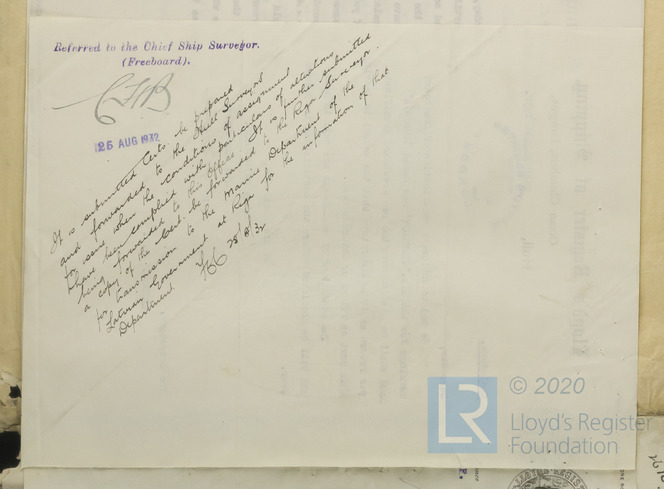 Referred to the Chief Ship Surveyor.
(Freeboard).
26 AUG 1932
It is submitted Certs be prepared
and forwarded to the Hull Surveyors
for issue when the conditions of assignment
have been complied with particulars of alterations
being forwarded to this Office. It is further submitted
a copy of the Cert. be forwarded to the Riga Surveyor
for transmission to the Marine Department of the
Latvian Government at Riga for the information of that
Department
25/8/32
LR
© 2020
Lloyd's Register
Foundation